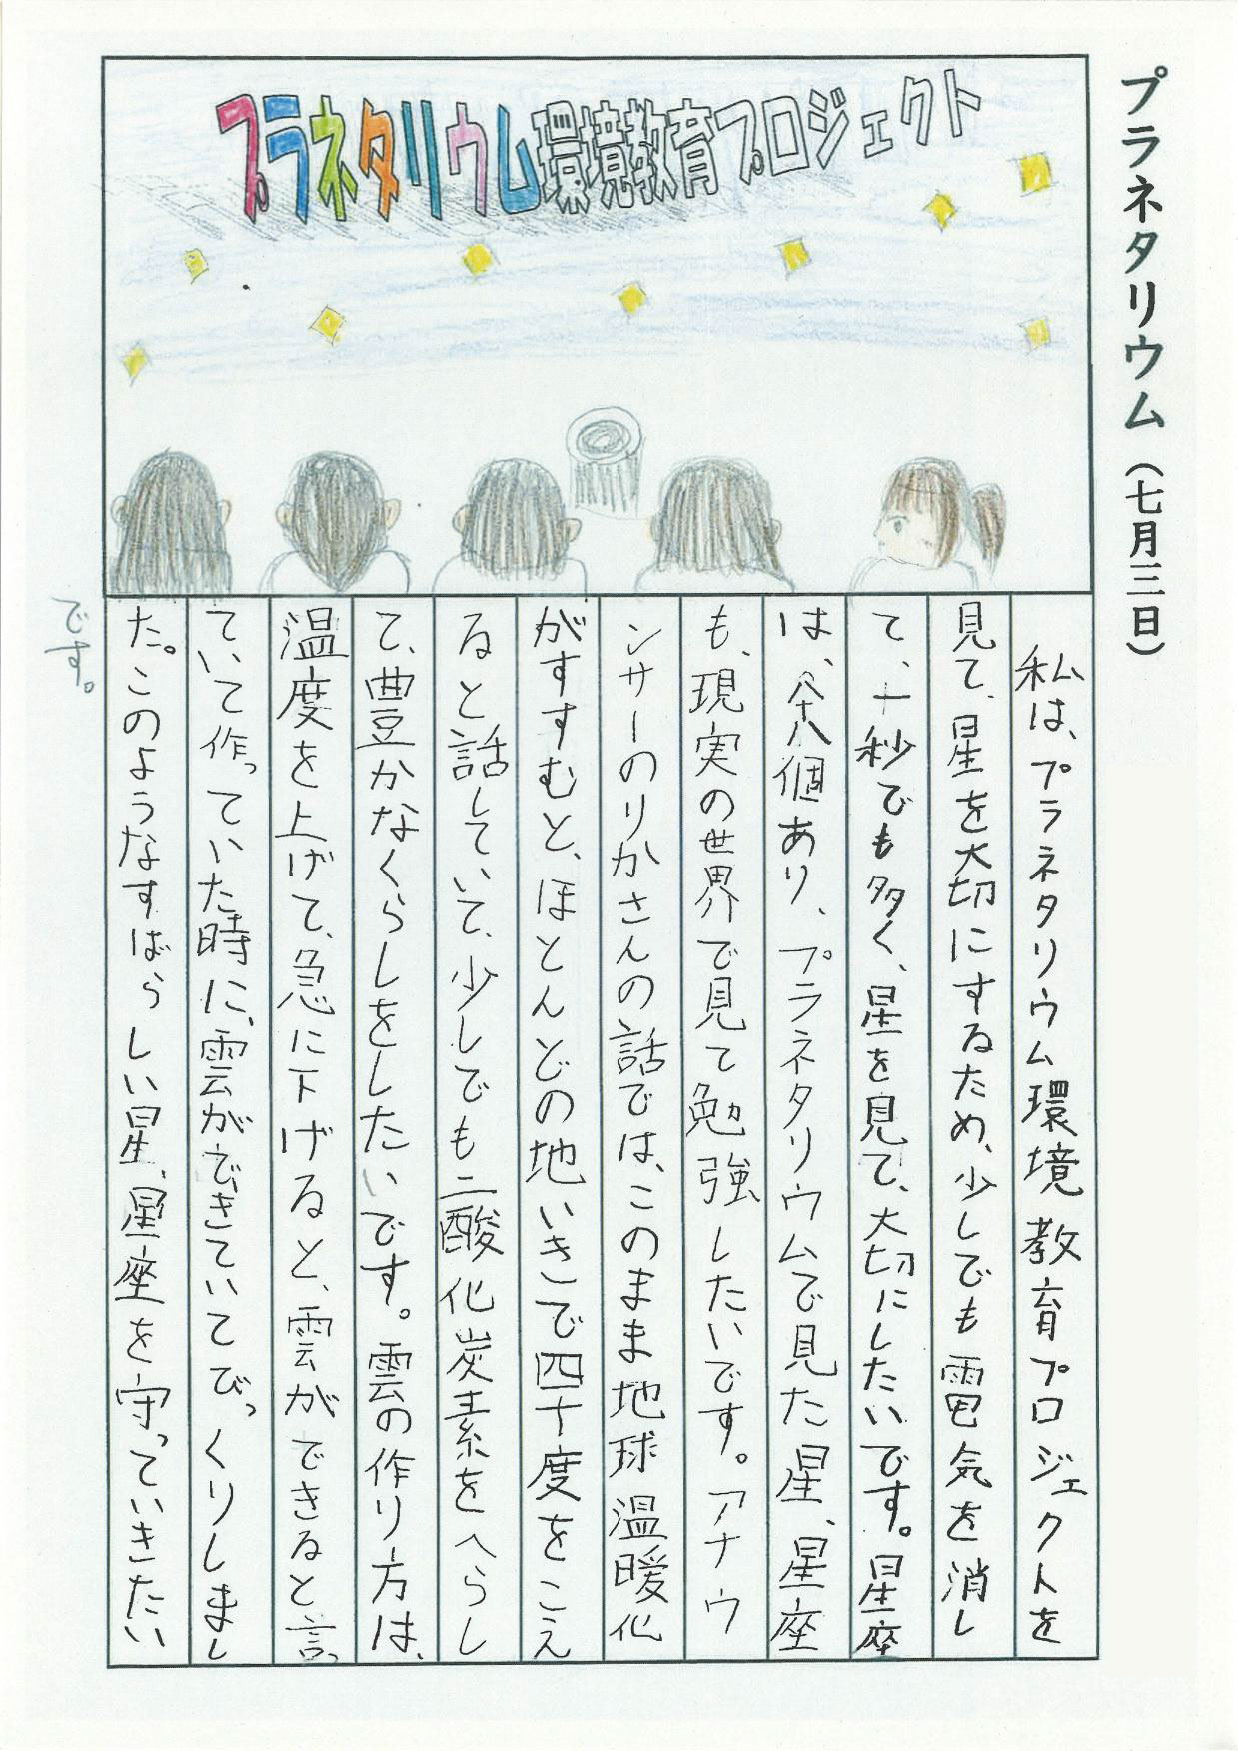 プラネタリウム（七月三日）
プラネタリウム環境教育プロジェクト
私は、プラネタリウム環境教育プロジェクトを
見て、星を大切にするため、少しでも電気を消し
て、十秒でも多く、星を見て、大切にしたいです。星座
は、八十八個あり、プラネタリウムで見た星、星座
も、現実の世界で見て勉強したいです。アナウ
ンサーのりかさんの話では、このまま地球温暖化
がすすむと、ほとんどの地いきで四十度をこえ
ると話していて、少しでも二酸化炭素をへらし
て、豊かなくらしをしたいです。雲の作り方は、
温度を上げて、急に下げると、雲ができると言っ
ていて作っていた時に、雲ができていてびっくりしまし
た。このようなすばらしい星、星座を守っていきたい
です。